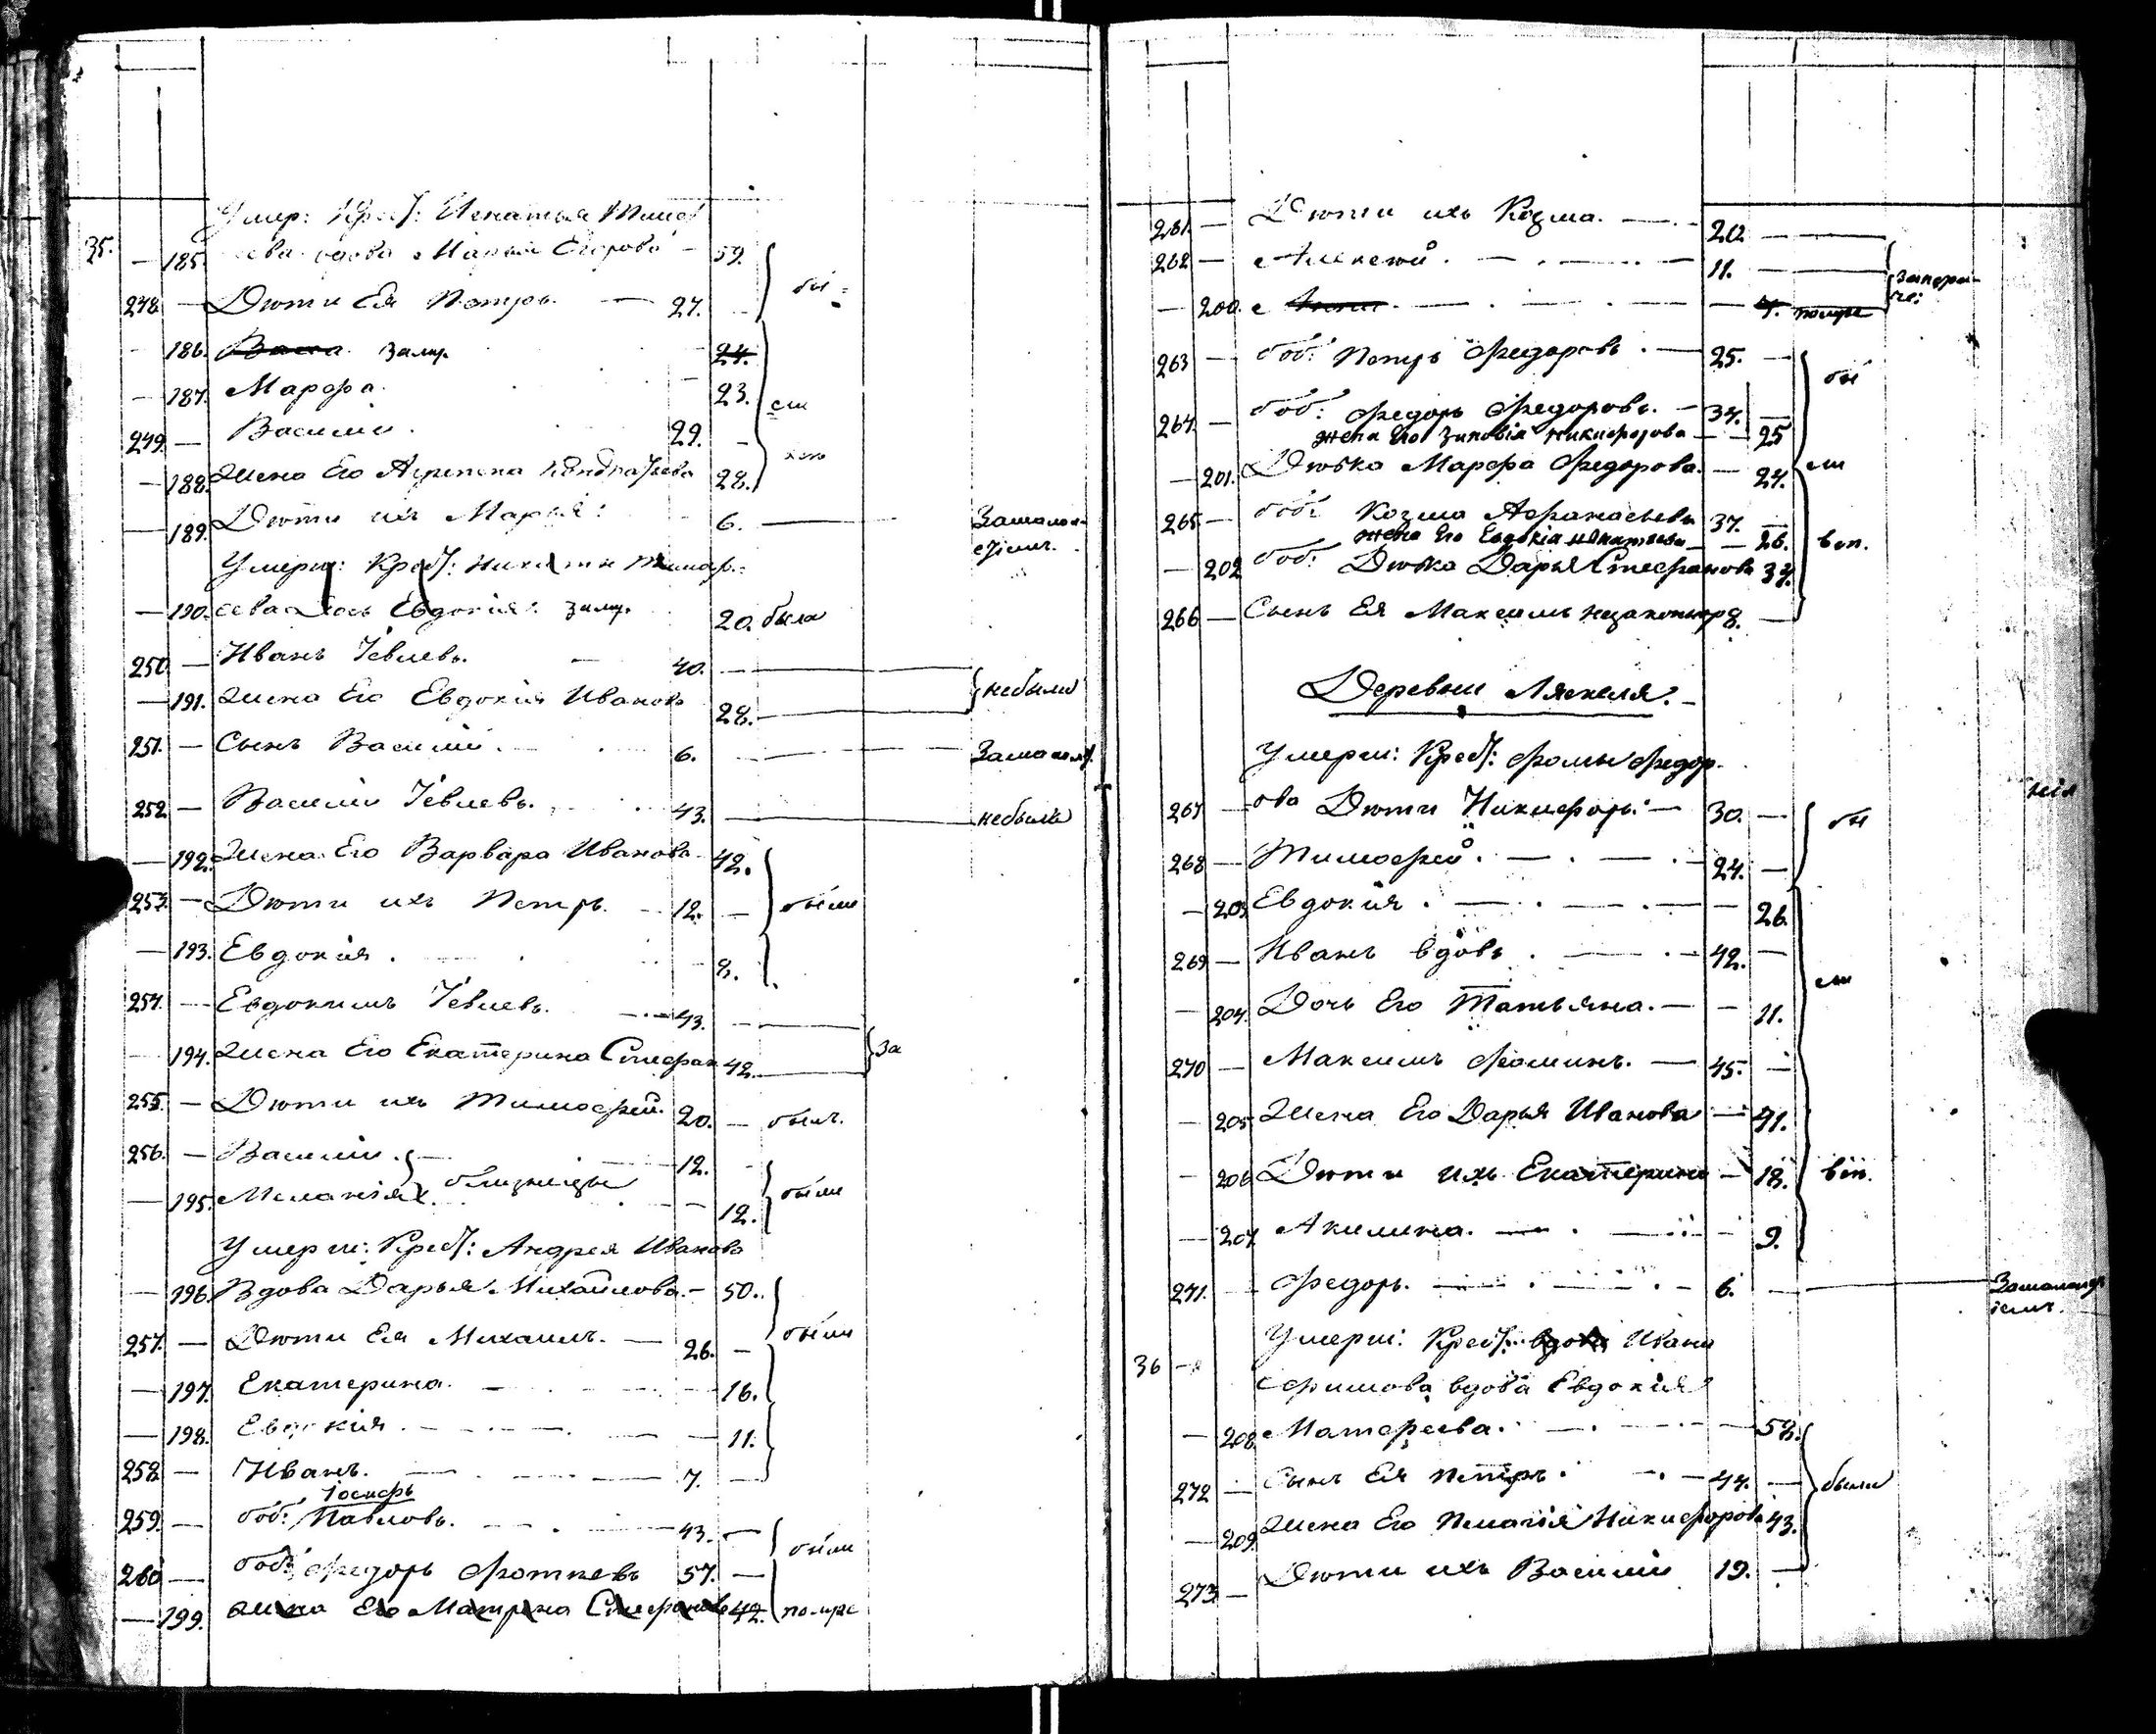 Умер: Крест: Игнатья Тимоѳ
35. — 185. еева вдова Марья Егорова — 59.
248 — Дѣти Ея Петръ. — 27. бы=
— 186. Васса замуж. 24.
— 187. Марфа. 23. ли
249. — Василій. 29. —
— 188. Жена Его Агрипена Кондратьева 28.
— 189. Дѣти ихъ Марья: 6. — Замало-
лѣтім.
Умерш: Крест: Никиты
— 190. дочь Евдокія: замуж. 20. была
250 — Иванъ Іевлевъ. — 40. —
— 191. Жена Его Евдокія Иванов 28. — небыли
251. — Сынъ Василій. 6. — Замалол.
252 — Василій Іевлевъ. 43. — небылъ
— 192. Жена Его Варвара Иванова 42.
253. — Дѣти ихъ Петръ. — 12. — были
— 193. Евдокія. 8.
254. — Евдокимъ Іевлевъ. — 43. —
— 194. Жена Его Екатерина Стефан 42. — За
255. — Дѣти ихъ Тимофей. 20. — былъ.
256. — Василій. — 12. — близнецы
— 195. Меланія. 12. были
Умерш: Крест: Андрея Иванова
— 196. Вдова Дарья Михайлова. — 50.
257. — Дѣти Ея Михаилъ. — 26. — были
— 197. Екатерина. — 16.
— 198. Евдокія. — 11.
258 — Иванъ. — 7. —
Іосифъ
259. — боб: Павловъ. — 43. —
260 — боб: Федоръ Фотіевъ 57. — были
— 199. Жена Его Матрена Стефанова 42. помре
261 — Дѣти ихъ Козма. — 20 —
262 — Алексей. — 11. —
— 200. 4. помре
263 — боб: Петръ Федоровъ. — 25. —
бы
264. — боб: Федоръ Федоровъ. — 34. —
жена Его Зиновія Никифорова — 25
— 201. Дѣвка Марфа Федорова. — 24. ли
265 — боб: Козма Афанасьевъ 37. —
жена Его Евдокія Игнатьева — 26. всп.
— 202 боб: Дѣвка Дарья Стефанова 37.
266 — Сынъ Ея Максимъ незаконнор 8. —
Деревни Ляскеля.
Умерш: Крест: Фомы Федор-
267 — ова Дѣти Никифоръ. — 30. — бы
268 — Тимофей. — 24. —
— 203 Евдокія. — 26.
269 — Иванъ вдовъ. — 42. —
ли
— 204. Дочь Его Татьяна. — 11.
270 — Максимъ Фоминъ. — 45. —
— 205 Жена Его Дарья Иванова — 41.
— 206 Дѣти ихъ Екатерина — 18. всп.
— 207 Акилина. — 9.
271. — Федоръ. — 6. — Замалолѣт
іемъ.
36 — Умерш: Крест: вдова Ивана
Ефимова вдова Евдокія
— 208 Матфеева. — 58.
272 — Сынъ Ея Петръ. — 44. — были
— 209 Жена Его Пелагія Никифорова 43.
273 — Дѣти ихъ Василій 19. —